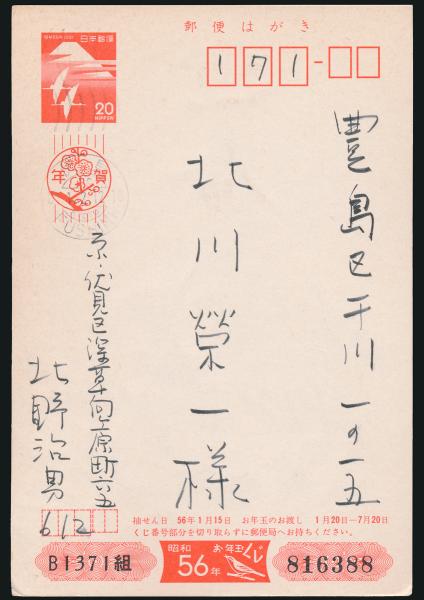 郵便はがき
日本郵便
20
NIPPON
171-
豊島区千川一の一五
北川榮一様
年賀
京・伏見区深草向ヶ原町六五
北野治男
612
抽せん日 56年1月15日 お年玉のお渡し 1月20日―7月20日
くじ番号部分を切り取らずに郵便局へお持ちください。
昭和
56年
お年玉くじ
B1371組
816388